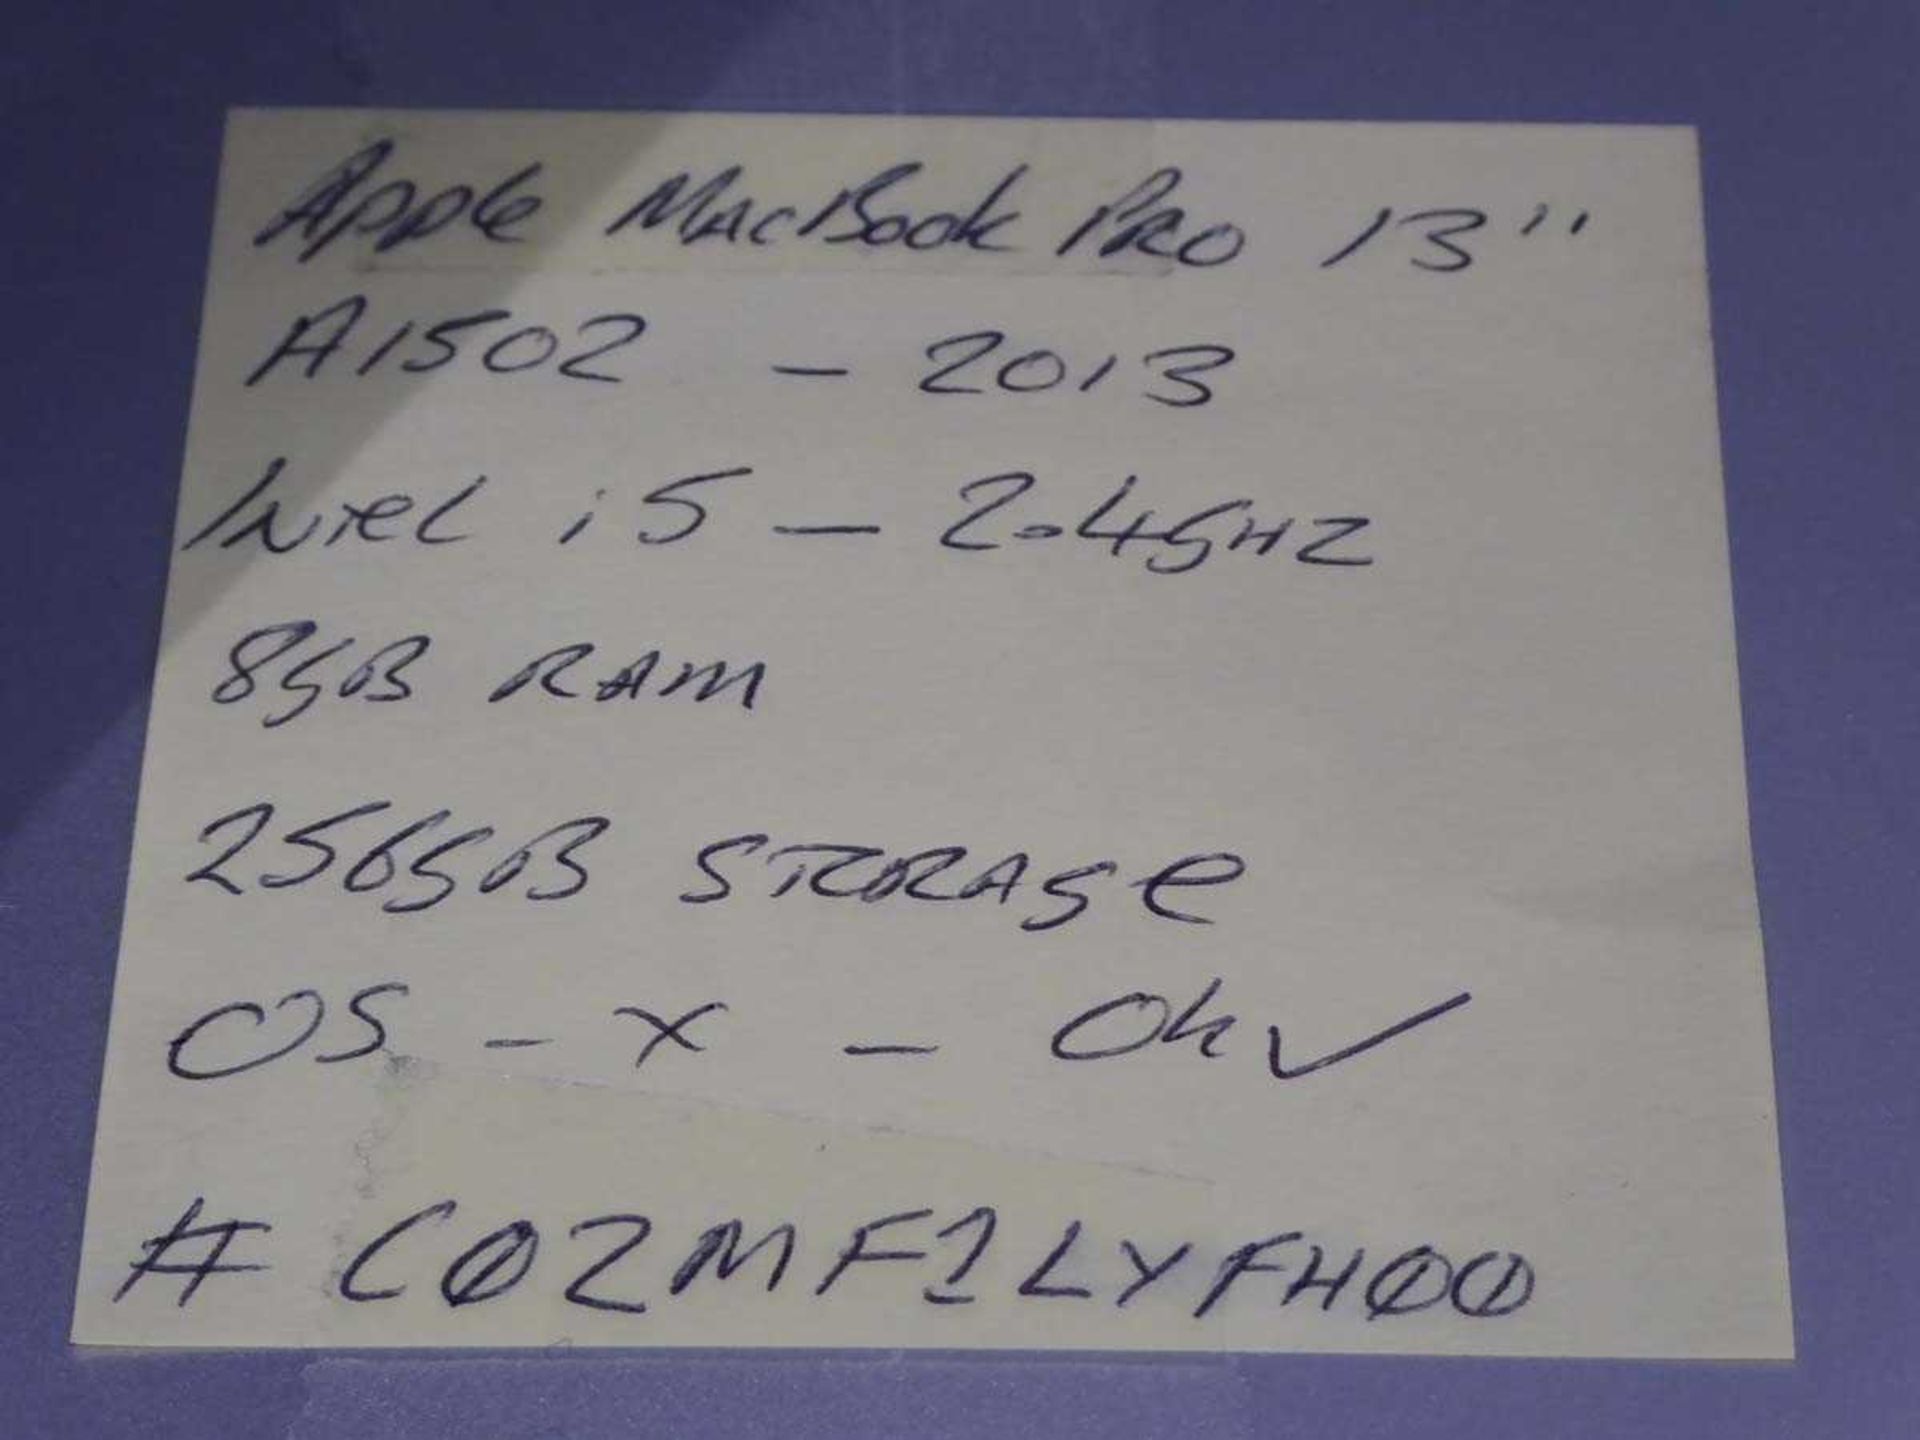 Apple MacBook Pro 13"
A1502 - 2013
Intel i5 - 2.4GHZ
8GB RAM
256GB STORAGE
OS - X - Ok ✓
# C02MF1LYFH00